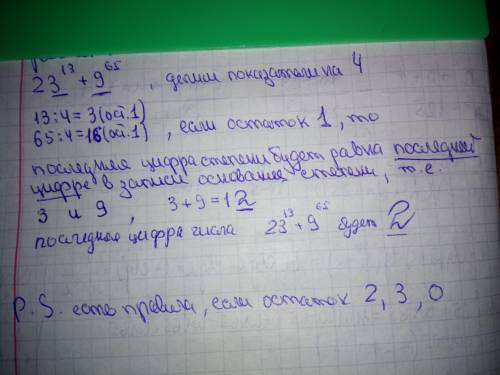 23¹³ + 9⁶⁵ , делим показатели на 4
13:4=3(ост.1)
65:4=16(ост.1) , если остаток 1, то
последняя цифра степени будет равна последней
цифре в записи основания степени, т.е.
3 и 9 , 3+9=12
последняя цифра числа 23¹³+9⁶⁵ будет 2
P.S. есть правила, если остаток 2, 3, 0